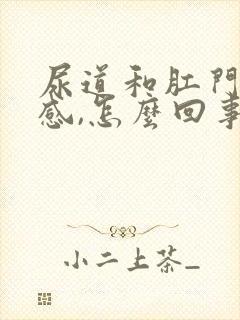 尿道和肛門
感,怎麼回事
小二上茶_